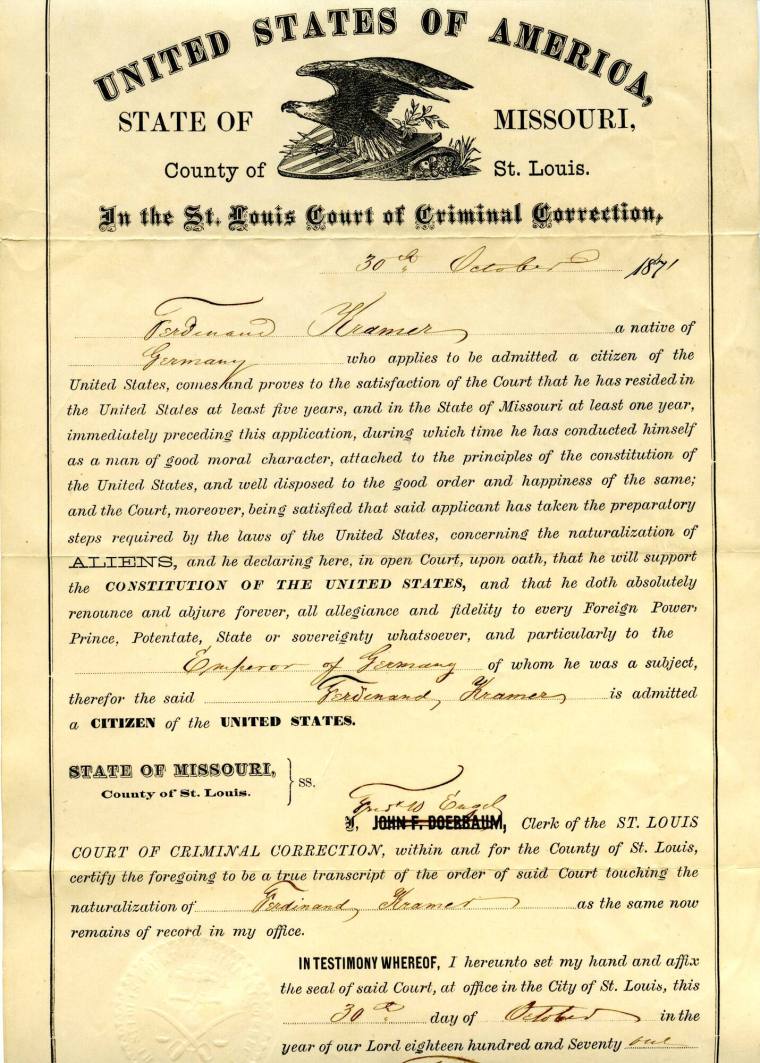 UNITED STATES OF AMERICA,
STATE OF MISSOURI,
County of St. Louis.
In the St. Louis Court of Criminal Correction,
30th October 1871
Ferdinand Kramer a native of
Germany who applies to be admitted a citizen of the
United States, comes and proves to the satisfaction of the Court that he has resided in
the United States at least five years, and in the State of Missouri at least one year,
immediately preceding this application, during which time he has conducted himself
as a man of good moral character, attached to the principles of the constitution of
the United States, and well disposed to the good order and happiness of the same;
and the Court, moreover, being satisfied that said applicant has taken the preparatory
steps required by the laws of the United States, concerning the naturalization of
ALIENS, and he declaring here, in open Court, upon oath, that he will support
the CONSTITUTION OF THE UNITED STATES, and that he doth absolutely
renounce and abjure forever, all allegiance and fidelity to every Foreign Power,
Prince, Potentate, State or sovereignty whatsoever, and particularly to the
Emperor of Germany of whom he was a subject,
therefor the said Ferdinand Kramer is admitted
a CITIZEN of the UNITED STATES.
STATE OF MISSOURI,
County of St. Louis. } SS.
Fredk W Engel
I, JOHN F. DOERBAUM, Clerk of the ST. LOUIS
COURT OF CRIMINAL CORRECTION, within and for the County of St. Louis,
certify the foregoing to be a true transcript of the order of said Court touching the
naturalization of Ferdinand Kramer as the same now
remains of record in my office.
IN TESTIMONY WHEREOF, I hereunto set my hand and affix
the seal of said Court, at office in the City of St. Louis, this
30th day of October in the
year of our Lord eighteen hundred and Seventy one